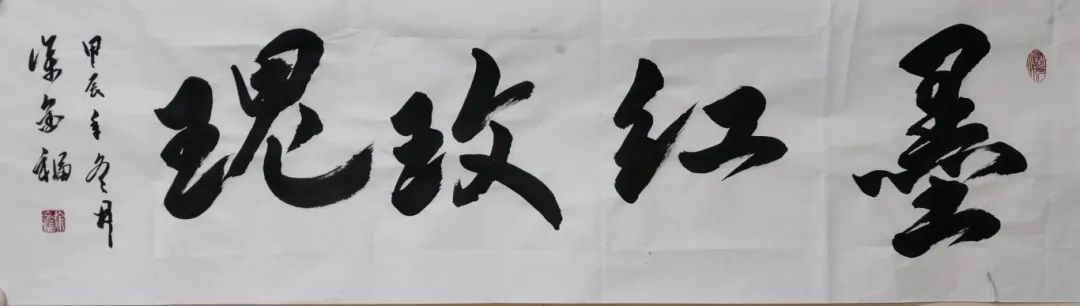 墨红玫瑰
甲辰年冬月
金福